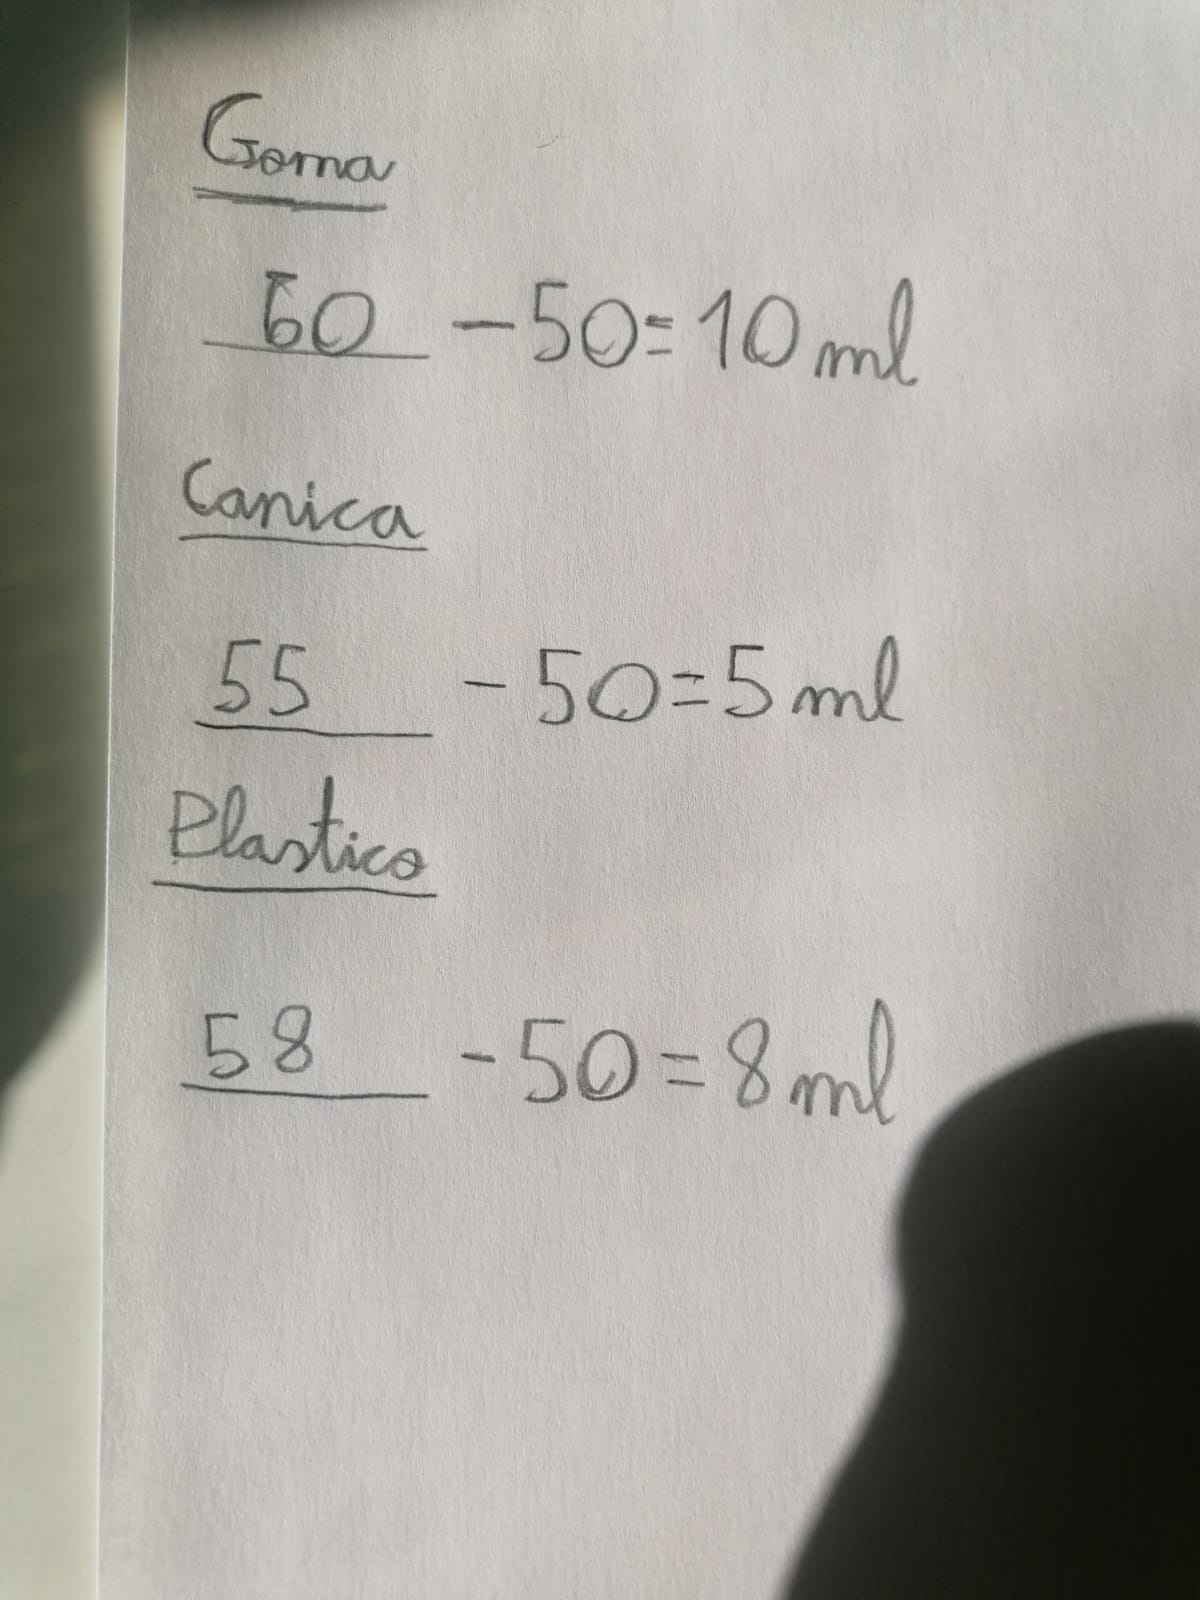 Goma
60 - 50 = 10 ml
Canica
55 - 50 = 5 ml
Plastico
58 - 50 = 8 ml